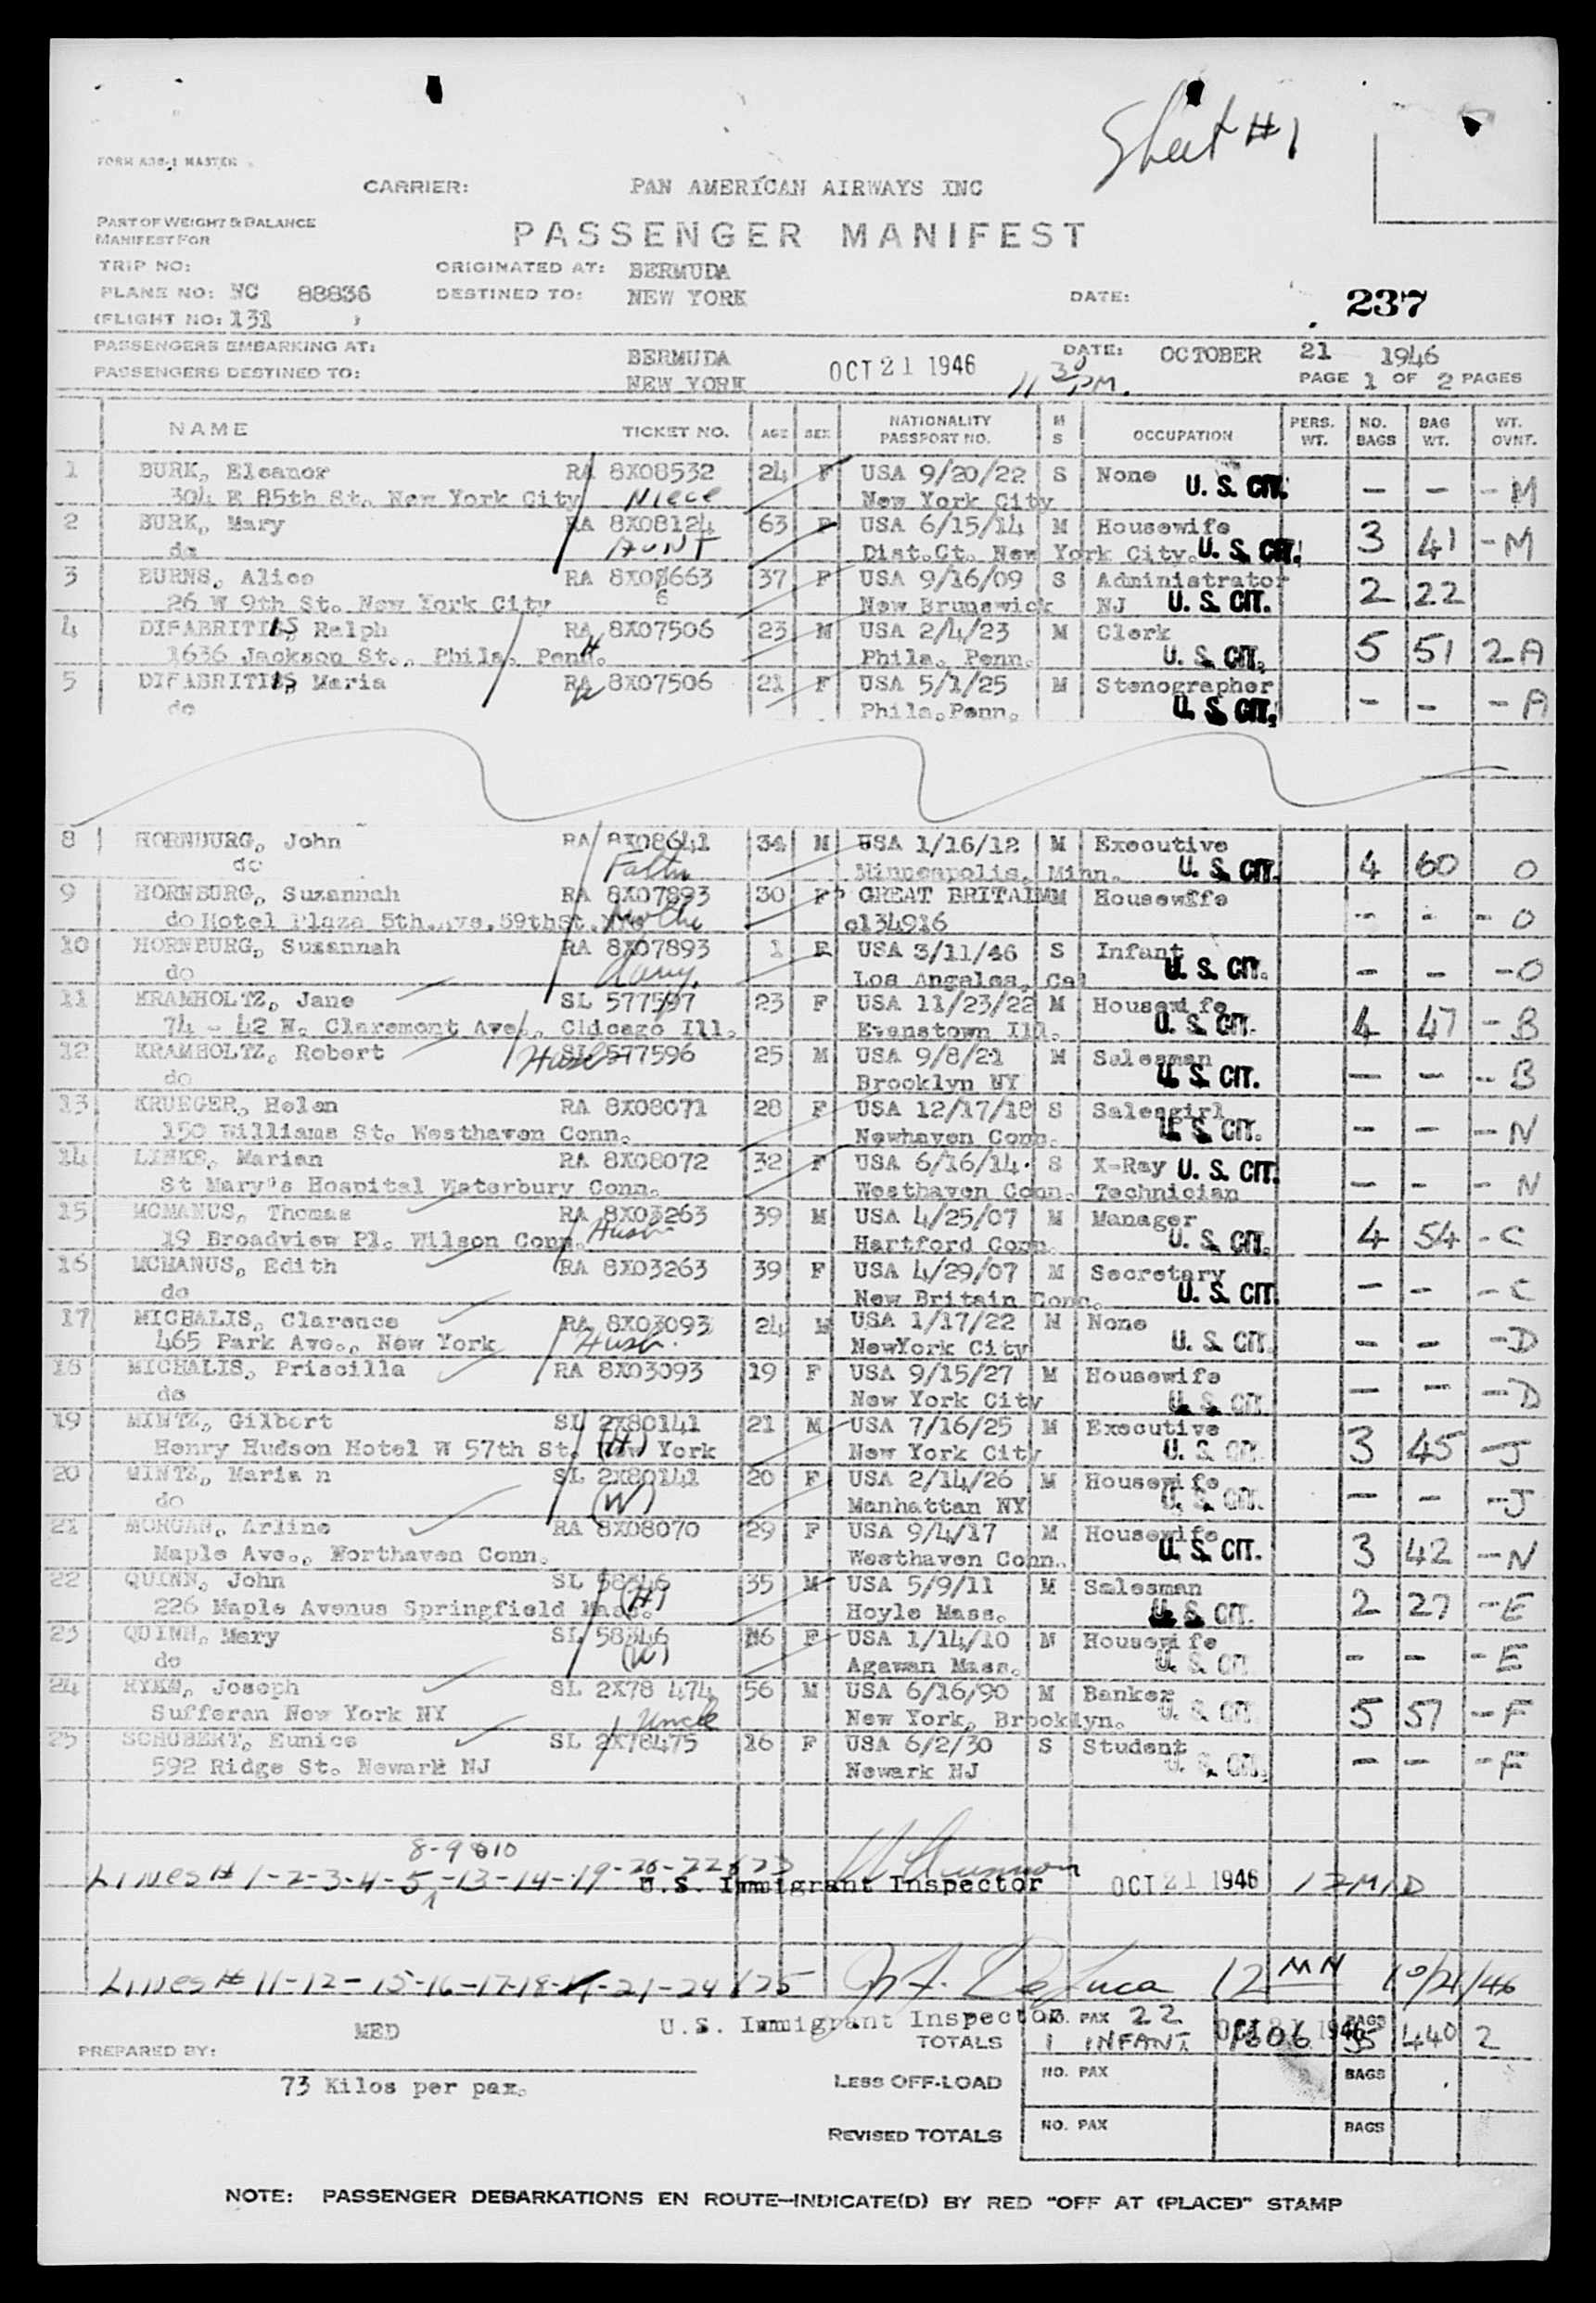 Sheet #1
FORM A36-1 MASTER
CARRIER: PAN AMERICAN AIRWAYS INC
PART OF WEIGHT & BALANCE
MANIFEST FOR
PASSENGER MANIFEST
TRIP NO: ORIGINATED AT: BERMUDA
PLANE NO: NC 88836 DESTINED TO: NEW YORK DATE: 237
(FLIGHT NO: 131 )
PASSENGERS EMBARKING AT: BERMUDA OCT 21 1946 DATE: OCTOBER 21 1946
PASSENGERS DESTINED TO: NEW YORK 11 30 PM. PAGE 1 OF 2 PAGES
NAME TICKET NO. AGE SEX NATIONALITY PASSPORT NO. M S OCCUPATION PERS. WT. NO. BAGS BAG WT. WT. OVNT.
1 BURK, Eleanor RA 8X08532 24 F USA 9/20/22 S None U. S. CIT. - - - M
304 E 85th St. New York City Niece New York City
2 BURK, Mary RA 8X08124 63 F USA 6/15/14 M Housewife 3 41 - M
do AUNT Dist.Ct. New York City. U. S. CIT.
3 BURNS, Alice RA 8X08663 37 F USA 9/16/09 S Administrator 2 22
26 W 9th St. New York City 8 New Brunswick NJ U. S. CIT.
4 DIFABRITIIS, Ralph RA 8X07506 23 M USA 2/4/23 M Clerk 5 51 2 A
1636 Jackson St., Phila. Penn. H Phila. Penn. U. S. CIT.
5 DIFABRITIIS, Maria RA 8X07506 21 F USA 5/1/25 M Stenographer - - - A
do W Phila.Penn. U. S. CIT.
8 HORNBURG, John RA 8X08641 34 M USA 1/16/12 M Executive 4 60 O
do Father Minneapolis, Minn. U. S. CIT.
9 HORNBURG, Suzannah RA 8X07893 30 F GREAT BRITAIN M Housewife - - - O
do Hotel Plaza 5th.Ave.59thSt. NYC Mother c134916
10 HORNBURG, Suzannah RA 8X07893 1 F USA 3/11/46 S Infant U. S. CIT. - - - O
do Los Angeles, Cal
11 KRAMHOLTZ, Jane SL 577597 23 F USA 11/23/22 M Housewife 4 47 - B
74 - 42 W. Claremont Ave., Chicago Ill. Evanstown Ill. U. S. CIT.
12 KRAMHOLTZ, Robert Husb SL 577596 25 M USA 9/8/21 M Salesman - - - B
do Brooklyn NY U. S. CIT.
13 KRUEGER, Helen RA 8X08071 28 F USA 12/17/18 S Salesgirl - - - N
150 Williams St. Westhaven Conn. Newhaven Conn. U. S. CIT.
14 LINKS, Marian RA 8X08072 32 F USA 6/16/14 S X-Ray U. S. CIT. - - - N
St Mary's Hospital Waterbury Conn. Westhaven Conn. Technician
15 MCMANUS, Thomas RA 8X03263 39 M USA 4/25/07 M Manager 4 54 - C
19 Broadview Pl. Wilson Conn. Husb Hartford Conn. U. S. CIT.
16 MCMANUS, Edith RA 8X03263 39 F USA 4/29/07 M Secretary - - - C
do New Britain Conn. U. S. CIT.
17 MICHALIS, Clarence RA 8X03093 24 M USA 1/17/22 M None - - - D
465 Park Ave., New York Husb. NewYork City U. S. CIT.
18 MICHALIS, Priscilla RA 8X03093 19 F USA 9/15/27 M Housewife - - - D
do New York City U. S. CIT.
19 MINTZ, Gilbert SL 2X80141 21 M USA 7/16/25 M Executive 3 45 - J
Henry Hudson Hotel W 57th St. New York (H) New York City U. S. CIT.
20 MINTZ, Maria n SL 2X80141 20 F USA 2/14/26 M Housewife - - - J
do (W) Manhattan NY U. S. CIT.
21 MORGAN, Arline RA 8X08070 29 F USA 9/4/17 M Housewife 3 42 - N
Maple Ave., Northaven Conn. Westhaven Conn. U. S. CIT.
22 QUINN, John SL 58346 35 M USA 5/9/11 M Salesman 2 27 - E
226 Maple Avenue Springfield Mass. (H) Hoyle Mass. U. S. CIT.
23 QUINN, Mary SL 58346 36 F USA 1/14/10 M Housewife - - - E
do (W) Agawan Mass. U. S. CIT
24 RYKN, Joseph SL 2X78 474 56 M USA 6/16/90 M Banker 5 57 - F
Sufferan New York NY Uncle New York, Brooklyn. U. S. CIT
25 SCHUBERT, Eunice SL 2X78475 16 F USA 6/2/30 S Student - - - F
592 Ridge St. Newark NJ Newark NJ U. S. CIT.
8-9 &10
Lines # 1-2-3-4-5-13-14-19-20-22 & 23 OCT 21 1946 12 MID
U.S. Immigrant Inspector
Lines # 11-12-15-16-17-18-21-24 & 25 DeLuca 12 MN 10/21/46
U.S. Immigrant Inspector
MED NO. PAX 22 OCT 21 1946 BAGS
PREPARED BY: TOTALS 1 INFANT 1606 35 440 2
73 Kilos per pax. LESS OFF-LOAD NO. PAX BAGS
REVISED TOTALS NO. PAX BAGS
NOTE: PASSENGER DEBARKATIONS EN ROUTE-INDICATE(D) BY RED "OFF AT (PLACE)" STAMP